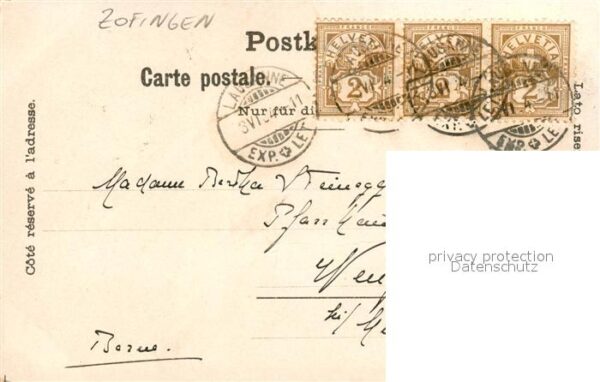 ZOFINGEN
Postk
Carte postale.
Nur für di
Côté réservé à l'adresse.
Lato rise
HELVETIA HELVETIA HELVETIA
FRANCO FRANCO FRANCO
2 2 2
LAUSANNE
EXP. LE
Madame Bertha
Pfarrhau
Weng
Berne.
privacy protection
Datenschutz